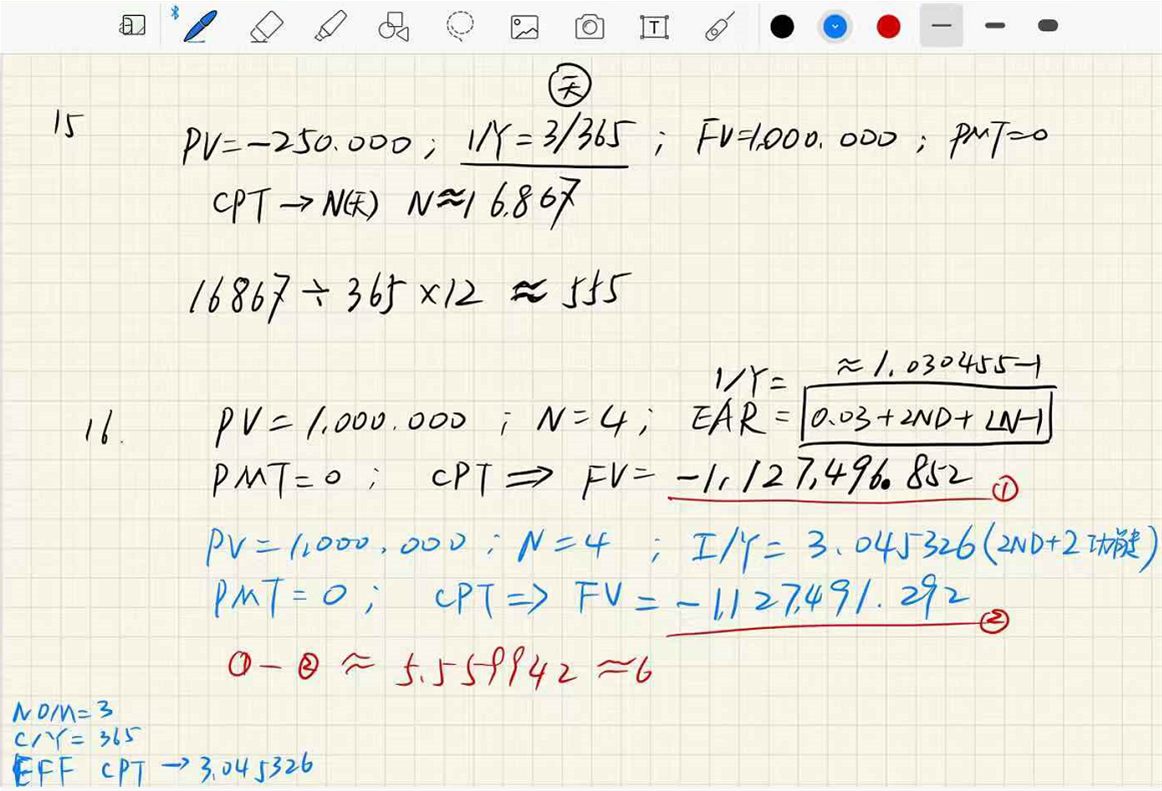 天
15 PV=-250.000; I/Y=3/365; FV=1,000.000; PMT=0
CPT→N(天) N≈16.867
16867÷365×12≈555
I/Y= ≈1.030455-1
16. PV=1,000.000; N=4; EAR=0.03+2ND+LN-1
PMT=0; CPT⇒FV=-1,127,496.852 ①
PV=1,000,000; N=4; I/Y=3.045326(2ND+2功能键)
PMT=0; CPT⇒FV=-1,127,491.292 ②
①-②≈5.559942≈6
NOM=3
C/Y=365
EFF CPT→3.045326